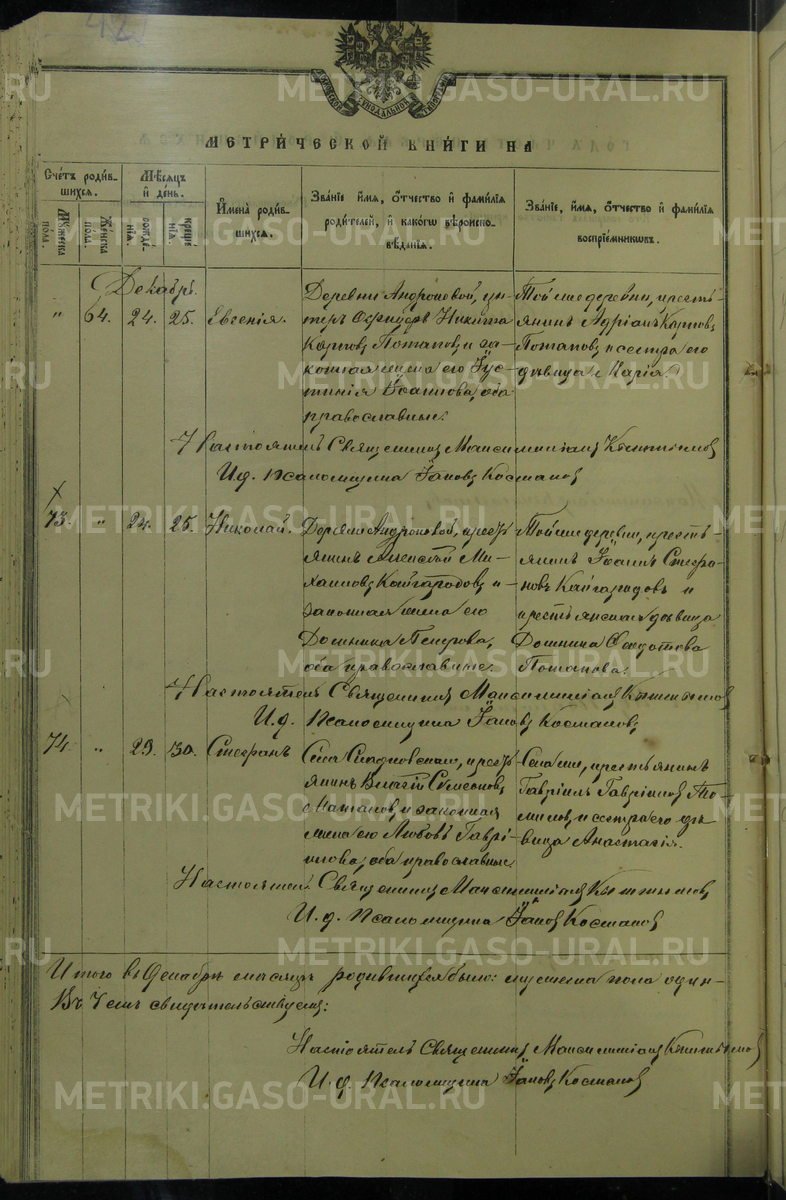 42
МЕТРИ́ЧЕСКОЙ КНИ́ГИ НА
Сче́тъ роди́в-
шихся.
Мꙋ́жеска
по́ла.
Же́нска
по́ла.
Мѣ́сяцъ
и҆ де́нь.
рожде́-
нїя.
креще́-
нїя.
И҆мена̀ роди́в-
шихся.
Зва́нїе и҆мя, ѻ҆́тчество и҆ фами́лїя
роди́телей, и҆ како́гѡ вѣроиспо-
вѣ́данїѧ.
Зва́нїе, и҆́мя, ѻ҆́тчество и҆ фами́лїя
воспрїе́мникѡвъ.
Декабрь.
" 64. 24. 25. Евгенія.
Деревни Андроновой, ун-
теръ Офицеръ Никита
Карповъ Потаповъ и за-
конная жена его Іус-
тинія Іоаннова, оба
православные.
Той же деревни, кресть-
янинъ Адріанъ Карповъ
Потаповъ и сестра его
дѣвица Марія
Настоятель Священникъ Максимиліанъ
И. д. Псаломщика Іаковъ Космаковъ
73. " 24. 25. Николай.
Деревни Андроновой, кресть-
янинъ Алексѣй Ми-
хаиловъ Кайгародовъ и
законная жена его
Домника Петрова,
оба православные.
Той же деревни, кресть-
янинъ Іоаннъ Стефа-
новъ Кайгародовъ и
крестьянская дѣвица
Домнина Ѳедотова
Потапова.
Настоятель Священникъ Максимиліанъ
И. д. Псаломщика Іаковъ Космаковъ
74. " 29. 30. Стефанъ
Села кресть-
янинъ Симеоновъ
и законная
жена его Любовь Гаврі-
илова, оба православные
Села же, крестьянинъ
Гавріилъ Гавріиловъ То-
миловъ и сестра его дѣ-
вица Анастасія.
Настоятель Священникъ Максимиліанъ
И. д. Псаломщика Іаковъ Космаковъ
Итого въ Декабрѣ мѣсяцѣ родившихся было: мужеска пола один-
Въ чемъ свидѣтельствуемъ:
Настоятель Священникъ Максимиліанъ
И. д. Псаломщика Іаковъ Космаковъ
METRIKI.GASO-URAL.RU